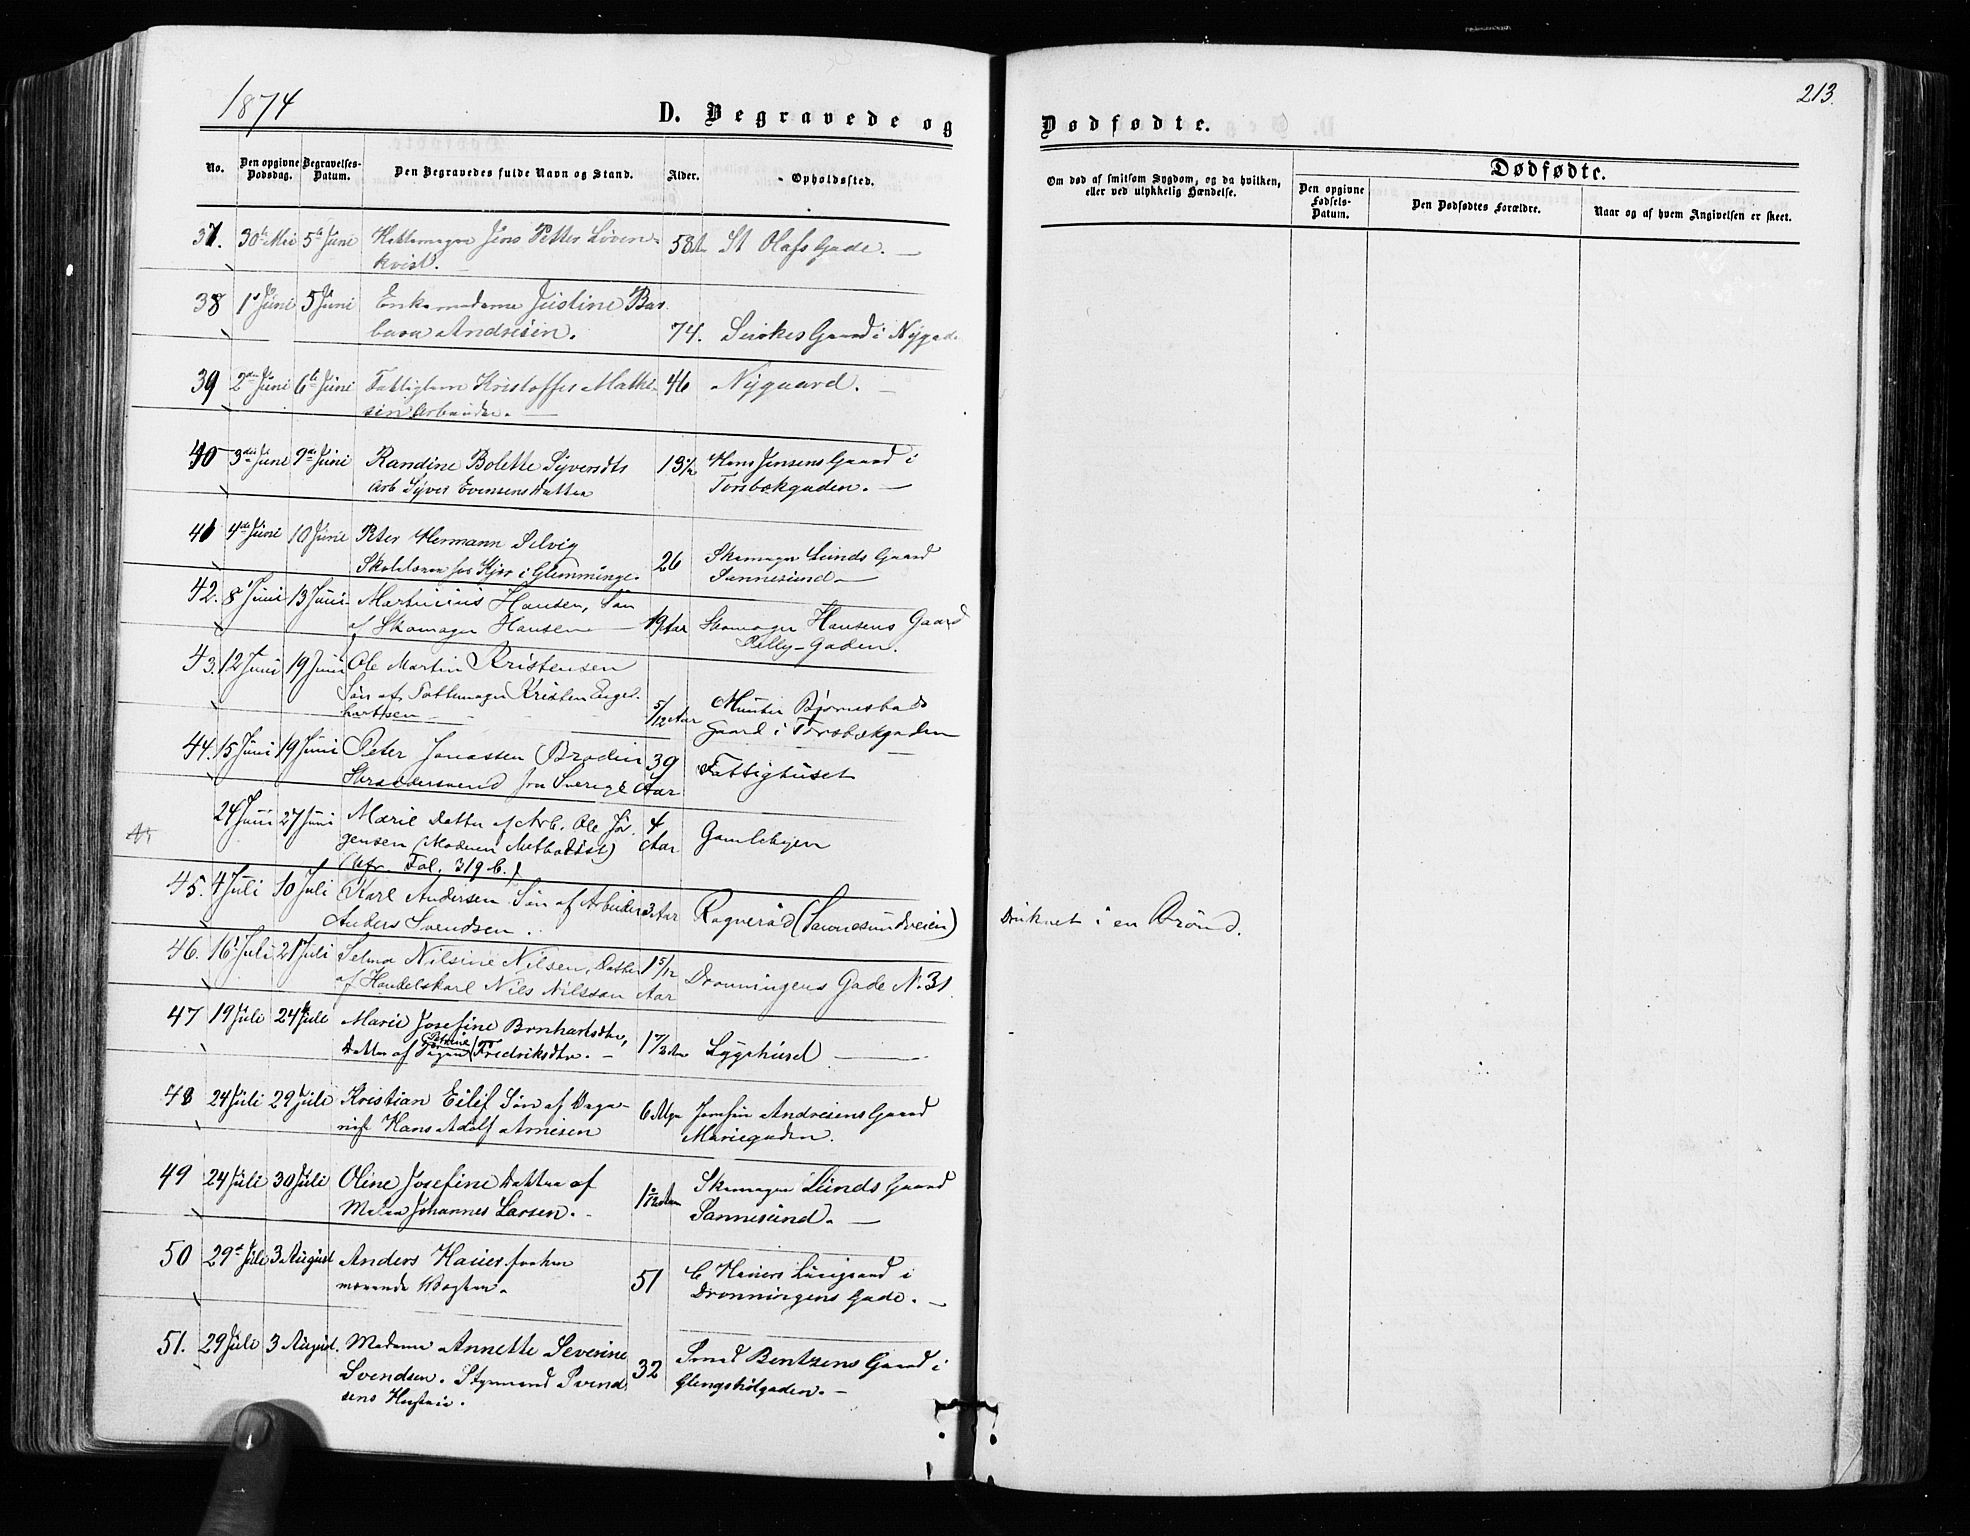 1874
D. Begravede og
Dødfødte.
213.
No.
Den opgivne Dødsdag.
Begravelses-Datum.
Den Begravedes fulde Navn og Stand.
Alder.
Opholdssted.
Om død af smitsom Sygdom, og da hvilken,
eller ved ulykkelig Hændelse.
Dødfødte.
Den opgivne Fødsels-Datum.
Den Dødfødtes Forældre.
Naar og af hvem Angivelsen er skeet.
37. 30te Mei 5te Juni Hattemager Jens Petter Löven- 58 St Olafs Gade.
kvist.
38 1 Juni 5 Juni Enkemadame Justine Bar
bara Andresen. 74. Gaard i Nygade
39 2den Juni 6te Juni Fattiglem Kristoffer Mathi 46 Nygaard.
sen Arbeider.
40 3die Juni 9de Juni Randine Bolette Syversdtr 13 1/2 Hans Jensens Gaard i
Arb Syver Evensens Datter Torsbekgaden.
41 4de Juni 10 Juni Peter Hermann Selvig Skomager Lunds Gaard
Skolelærer hos Kjær i Glemminge. 26 Sannesund
42. 8 Juni 13 Juni Martinius Hansen, Søn
af Skomager Hansen 19 Aar Skomager Hansens Gaard
Pelly-Gaden.
43. 12 Juni 19 Juni Ole Martin Kristensen
Søn af Pottemager Kristen Engel-
hartsen 5/12 Aar Munter Bjørnestads
Gaard i Torsbekgaden
44. 15 Juni 19 Juni Peter Jonassen Brodin 39 Fattighuset
Skræddersvend fra Sverige Aar
24 Juni 27 Juni Marie Datter af Arb. Ole Jör- 4 Gamlebyen
gensen (Moderen Methodist) Aar
(cfr. Fol. 319 b.)
45. 4 Juli 10 Juli Karl Andersen Søn af Arbeider 3 Aar Ragneröd (Sannesundveien) Druknet i en Brönd.
Anders Svendsen.
46. 16 Juli 21 Juli Selma Nilsine Nilsen, Datter 1 5/12 Dronningens Gade N. 31.
af Handelskarl Nils Nilsson Aar
47 19 Juli 24 Juli Marie Josefine Brnhartsdtr,
Datter af Pigen Fredriksdtr. Sygehuset
48 24 Juli 29 Juli Kristian Eilif Søn af Maga- 6 Andresens Gaard
nist Hans Adolf Arnesen Mariegaden.
49 24 Juli 30 Juli Oline Josefine Datter af Skomager Lunds Gaard
Johannes Larsen. Sannesund.
50 29 Juli 3 August Anders Hauer forhen
værende Vægter. 51 Hauers Gaard i
Dronningens Gade.
51. 29 Juli 3 August. Madame Annette Severine Smed Bentzens Gaard i
Svendsen. Styrmand Svend 32 Glengshölgaden.
sens Hustru.